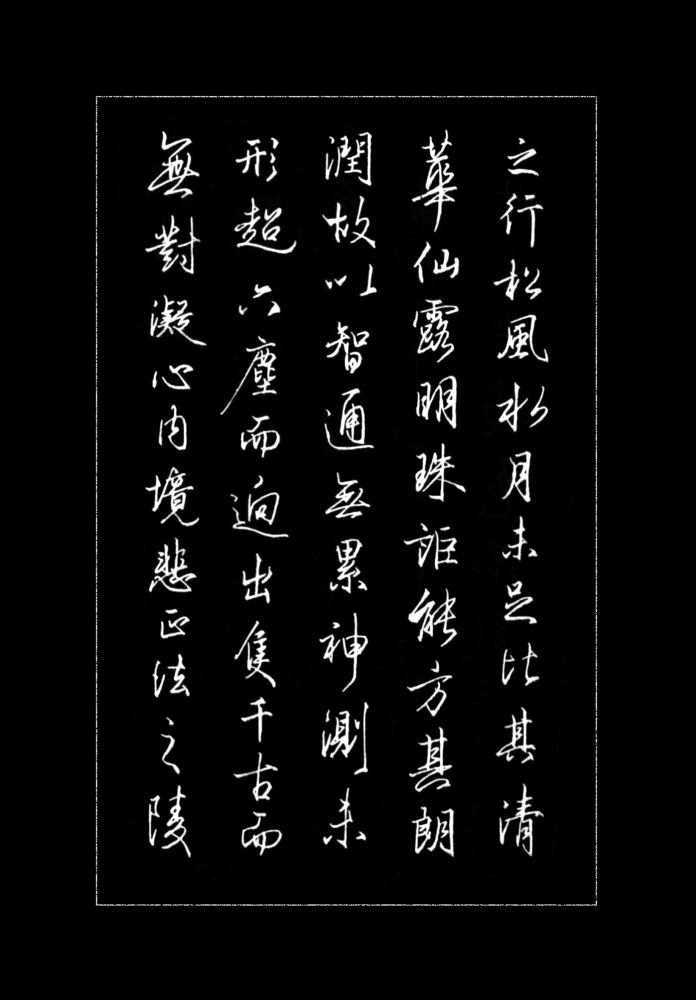 之行松風水月未足比其清
華仙露明珠詎能方其朗
潤故以智通無累神測未
形超六塵而迥出隻千古而
無對凝心內境悲正法之陵